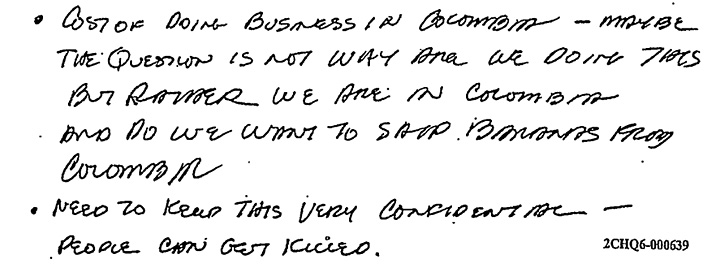 • COST OF DOING BUSINESS IN COLOMBIA – MAYBE
THE QUESTION IS NOT WHY ARE WE DOING THIS
BUT RATHER WE ARE IN COLOMBIA
AND DO WE WANT TO SHIP BANANAS FROM
COLOMBIA
• NEED TO KEEP THIS VERY CONFIDENTIAL –
PEOPLE CAN GET KILLED.
2CHQ6-000639